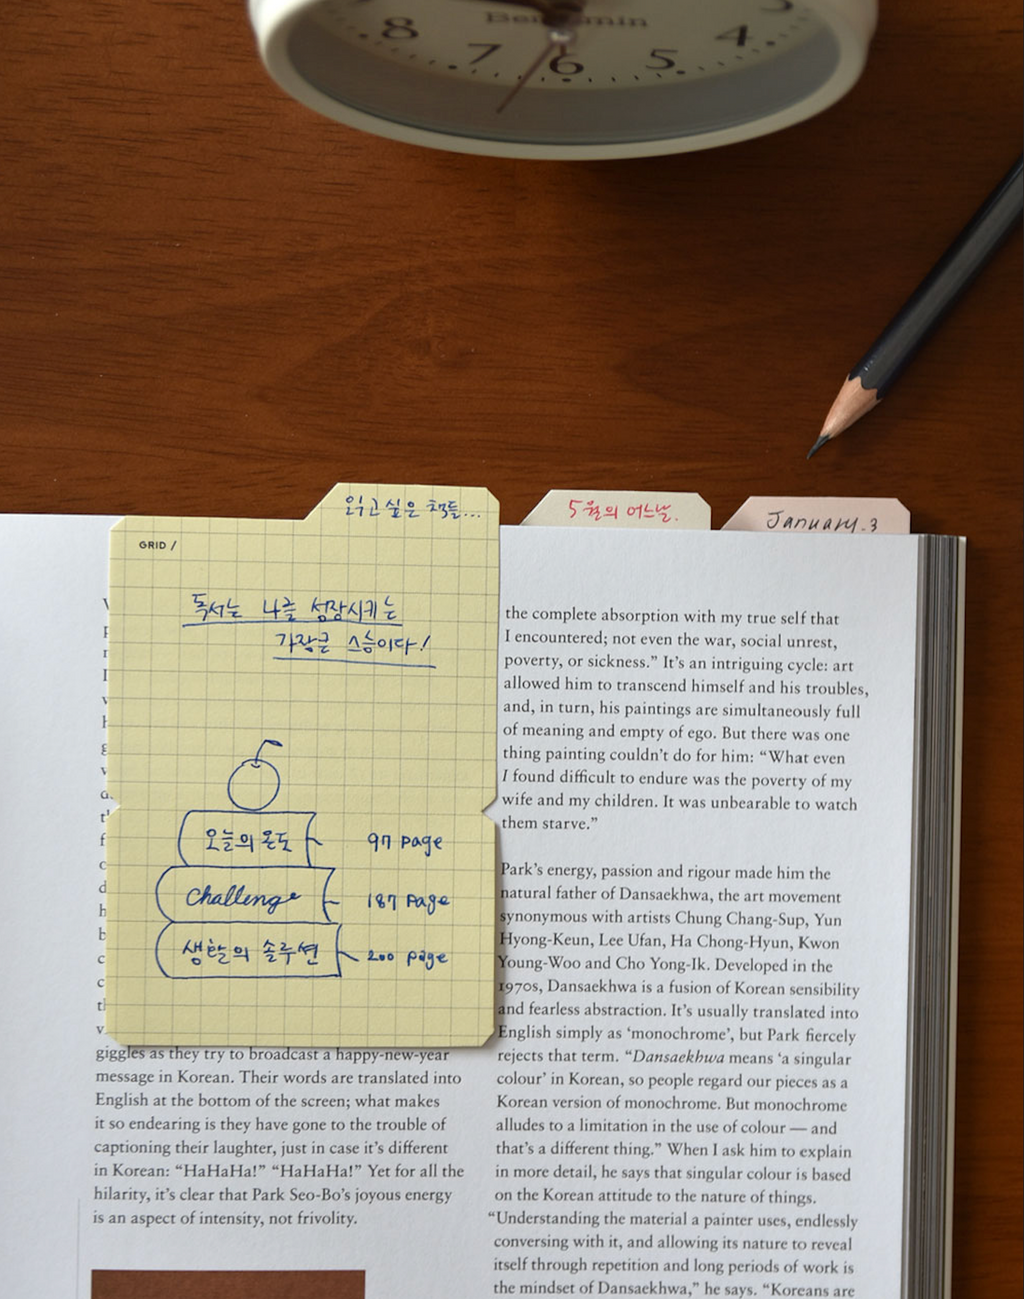 Benjamin
8
7
6
5
4
읽고 싶은 책들...
5월의 어느날.
January.3
GRID /
독서는 나를 성장시키는
가장큰 스승이다!
오늘의 온도 97 page
Challenge 187 page
생활의 솔루션 200 page
giggles as they try to broadcast a happy-new-year
message in Korean. Their words are translated into
English at the bottom of the screen; what makes
it so endearing is they have gone to the trouble of
captioning their laughter, just in case it’s different
in Korean: “HaHaHa!” “HaHaHa!” Yet for all the
hilarity, it’s clear that Park Seo-Bo’s joyous energy
is an aspect of intensity, not frivolity.
the complete absorption with my true self that
I encountered; not even the war, social unrest,
poverty, or sickness.” It’s an intriguing cycle: art
allowed him to transcend himself and his troubles,
and, in turn, his paintings are simultaneously full
of meaning and empty of ego. But there was one
thing painting couldn’t do for him: “What even
I found difficult to endure was the poverty of my
wife and my children. It was unbearable to watch
them starve.”
Park’s energy, passion and rigour made him the
natural father of Dansaekhwa, the art movement
synonymous with artists Chung Chang-Sup, Yun
Hyong-Keun, Lee Ufan, Ha Chong-Hyun, Kwon
Young-Woo and Cho Yong-Ik. Developed in the
1970s, Dansaekhwa is a fusion of Korean sensibility
and fearless abstraction. It’s usually translated into
English simply as ‘monochrome’, but Park fiercely
rejects that term. “Dansaekhwa means ‘a singular
colour’ in Korean, so people regard our pieces as a
Korean version of monochrome. But monochrome
alludes to a limitation in the use of colour — and
that’s a different thing.” When I ask him to explain
in more detail, he says that singular colour is based
on the Korean attitude to the nature of things.
“Understanding the material a painter uses, endlessly
conversing with it, and allowing its nature to reveal
itself through repetition and long periods of work is
the mindset of Dansaekhwa,” he says. “Koreans are